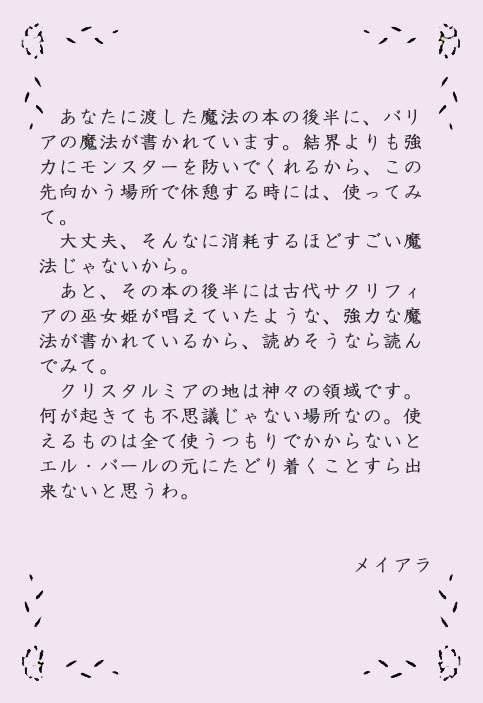 あなたに渡した魔法の本の後半に、バリ
アの魔法が書かれています。結界よりも強
力にモンスターを防いでくれるから、この
先向かう場所で休憩する時には、使ってみ
て。
　大丈夫、そんなに消耗するほどすごい魔
法じゃないから。
　あと、その本の後半には古代サクリフィ
アの巫女姫が唱えていたような、強力な魔
法が書かれているから、読めそうなら読ん
でみて。
　クリスタルミアの地は神々の領域です。
何が起きても不思議じゃない場所なの。使
えるものは全て使うつもりでかからないと
エル・バールの元にたどり着くことすら出
来ないと思うわ。
メイアラ